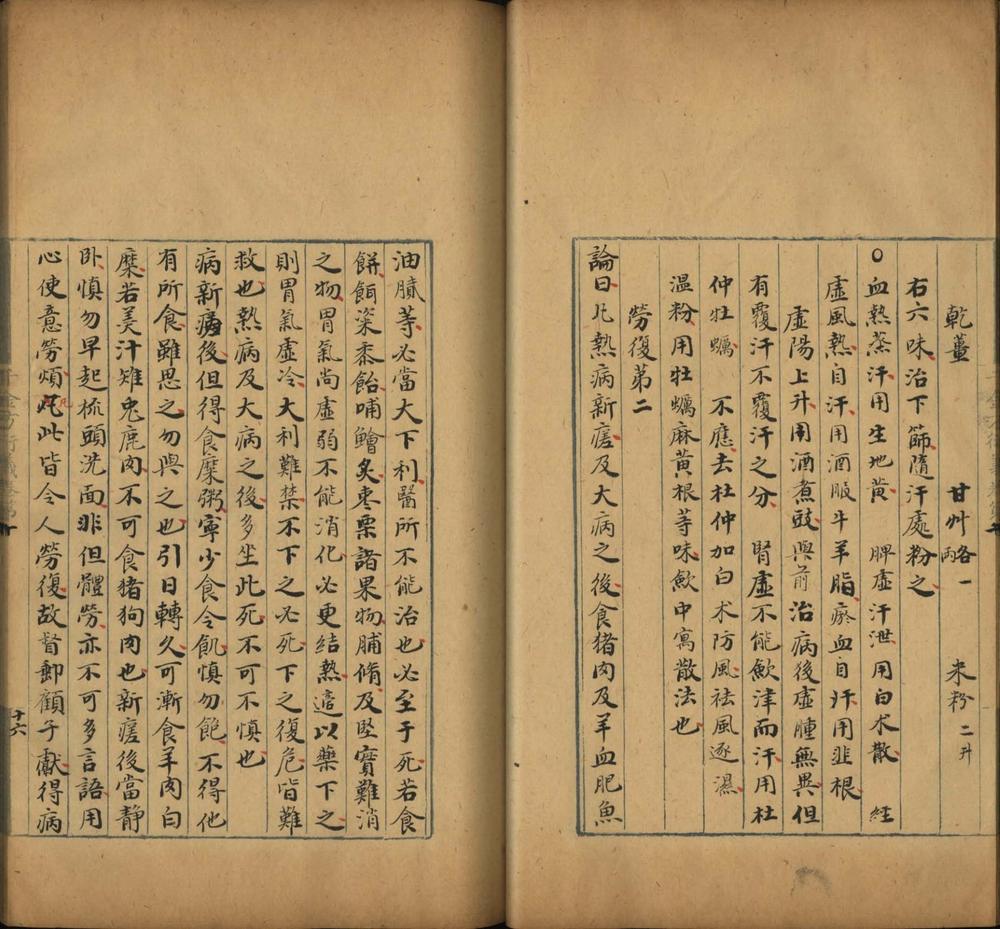 乾薑 甘艸各一兩 米粉二升
右六味治下篩隨汗處粉之
○血熱蒸汗用生地黄 脾虚汗泄用白术散 經
虚風熱自汗用酒服牛羊脂瘀血自汗用韭根
虚陽上升用酒煮豉與前治病後虚腫無異但
有覆汗不覆汗之分 腎虚不能飲津而汗用杜
仲牡蠣 不應去杜仲加白术防風祛風逐濕
温粉用牡蠣麻黄根等味飲中寓散法也
勞復第二
論曰凡熱病新瘥及大病之後食猪肉及羊血肥魚
油膩等必當大下利醫所不能治也必至于死若食
餅餌粢黍飴哺鱠炙枣栗諸果物脯脩及堅實難消
之物胃氣尚虚弱不能消化必更结熱適以藥下之
則胃氣虚冷大利難禁不下之必死下之復危皆難
救也熱病及大病之後多坐此死不可不慎也
病新瘥後但得食糜粥寧少食令飢慎勿飽不得他
有所食雖思之勿與之也引日轉久可漸食羊肉白
糜若羙汁雉兔鹿肉不可食猪狗肉也新瘥後當靜
卧慎勿早起梳頭洗面非但體勞亦不可多言語用
心使意勞煩凡此皆令人勞復故督郵顧子獻得病
十六